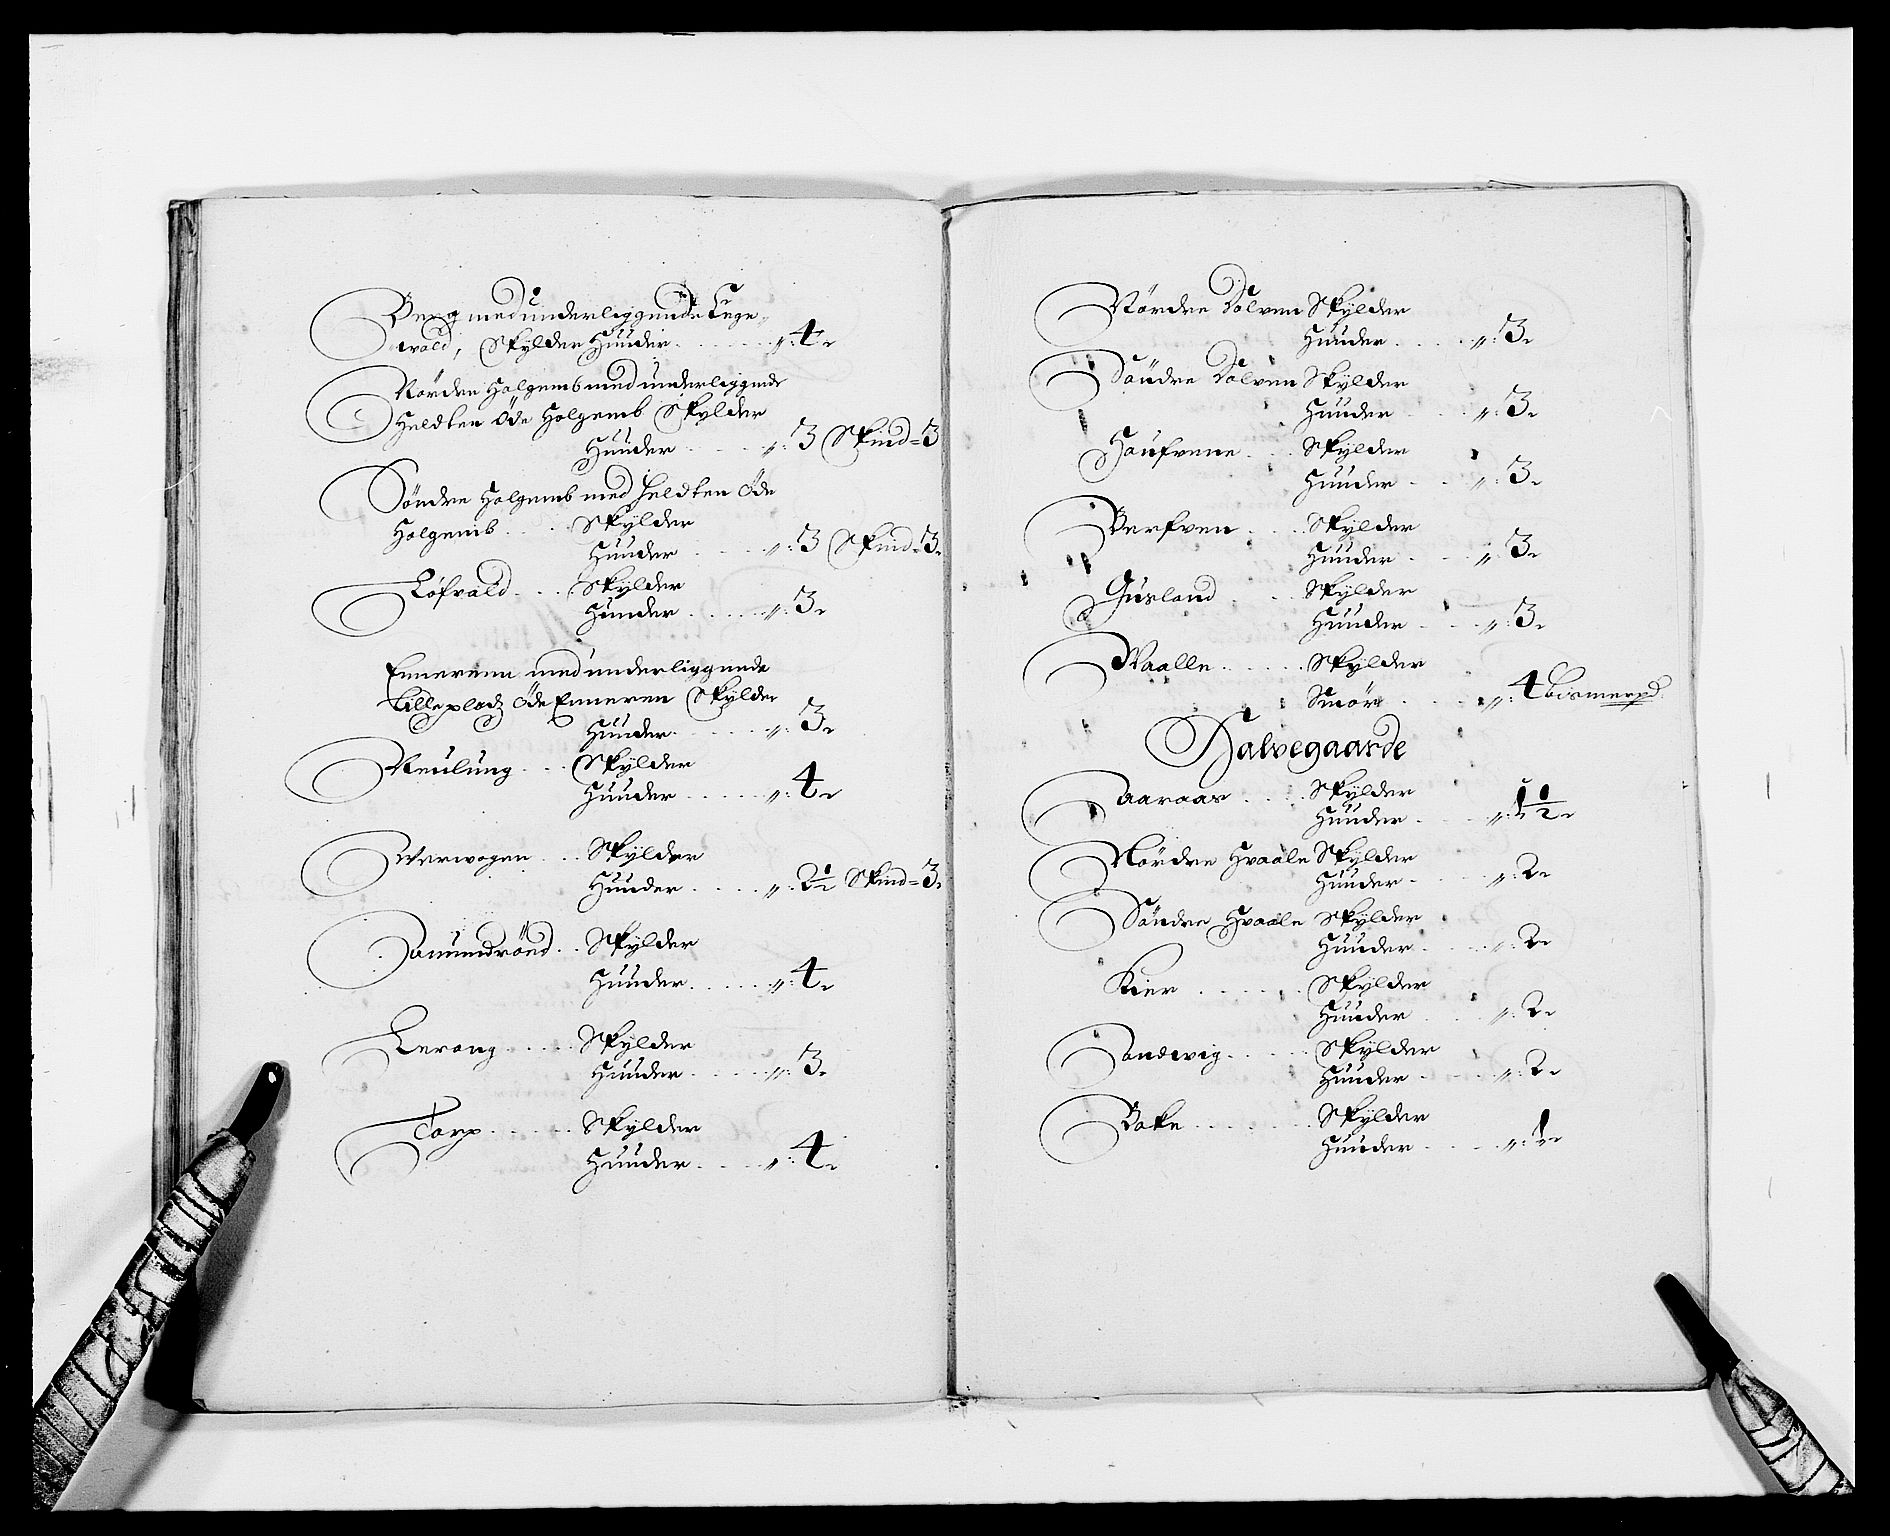 Berg med underliggende Lege-
wald, Skylder Huuder . . . . . . „: 4 „
Nördre Holgemb med underliggende
Heldten Öde Holgemb Skylder
Huuder . . . . „: 3 Skind = 3
Söndre Holgemb med Heldten Öde
Holgemb . . . Skylder
Huuder . . . . „: 3 Skind = 3 „
Löfvald . . . Skylder
Huuder . . . . . „: 3 „
Enneren med underliggende
Lille plads Öde Enneren Skylder
Huuder . . . . . „: 3 „
Reulung . . . Skylder
Huuder . . . . . „: 4 „
Werwogen . . . Skylder
Huuder . . . . „: 2½ Skind = 3 „
Amundröud . . Skylder
Huuder . . . . . „: 4 „
Lerang . . . . . Skylder
Huuder . . . . . „: 3 „
Torp . . . . . . Skylder
Huuder . . . . „: 4 „
Nördre Dolven Skylder
Huuder . . . . . „: 3 „
Söndre Dolven Skylder
Huuder . . . . „: 3 „
Haufvene . . . Skylder
Huuder . . . „: 3 „
Berfven . . . . Skylder
Huuder . . . . „: 3 „
Gusland . . . . Skylder
Huuder . . . . „: 3 „
Waalle . . . . . Skylder
Smör . . . . „: 4 bismerpd.
Halvegaarde
Aaraas . . . . Skylder
Huuder . . . . „: 1½ „
Nördre Hvaale Skylder
Huuder . . . . „: 2 „
Söndre Hvaale Skylder
Huuder . . . . „: 2 „
Kier . . . . . . Skylder
Huuder . . . . „: 2 „
Sandwig . . . . . Skylder
Huuder . . . . „: 2 „
Boke . . . . . . . Skylder
Huuder . . . . . „: 1 „